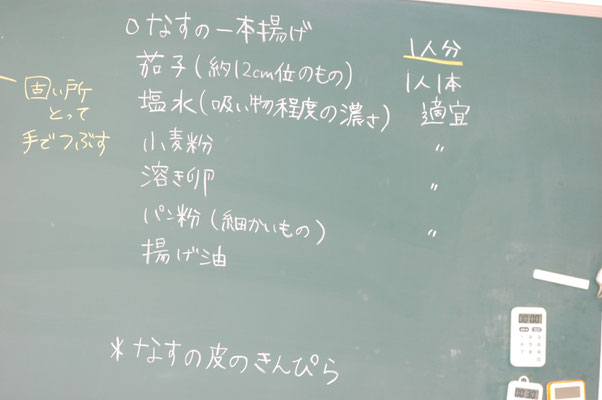 ○なすの一本揚げ
1人分
茄子(約12cm位のもの) 1人1本
塩水(吸い物程度の濃さ) 適宜
小麦粉 〃
溶き卵 〃
パン粉(細かいもの) 〃
揚げ油
*なすの皮のきんぴら
固い所
とって
手でつぶす
00:00
00:30